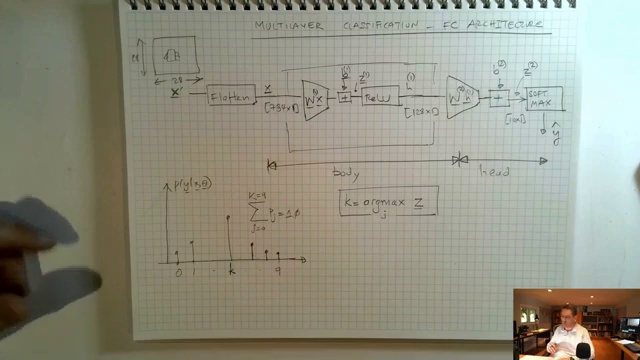 MULTILAYER CLASSIFICATION - FC ARCHITECTURE
28
28
x' Flatten x [784x1] W⁽¹⁾x b⁽¹⁾ + z⁽¹⁾ ReLU h⁽¹⁾ [128x1] W⁽²⁾h⁽¹⁾ b⁽²⁾ + z⁽²⁾ SOFT MAX
ŷ
body head
p(y|x,θ)
K=9
∑ pj = 1.0
j=0
k = argmax z
j
0 1 . k . . 9